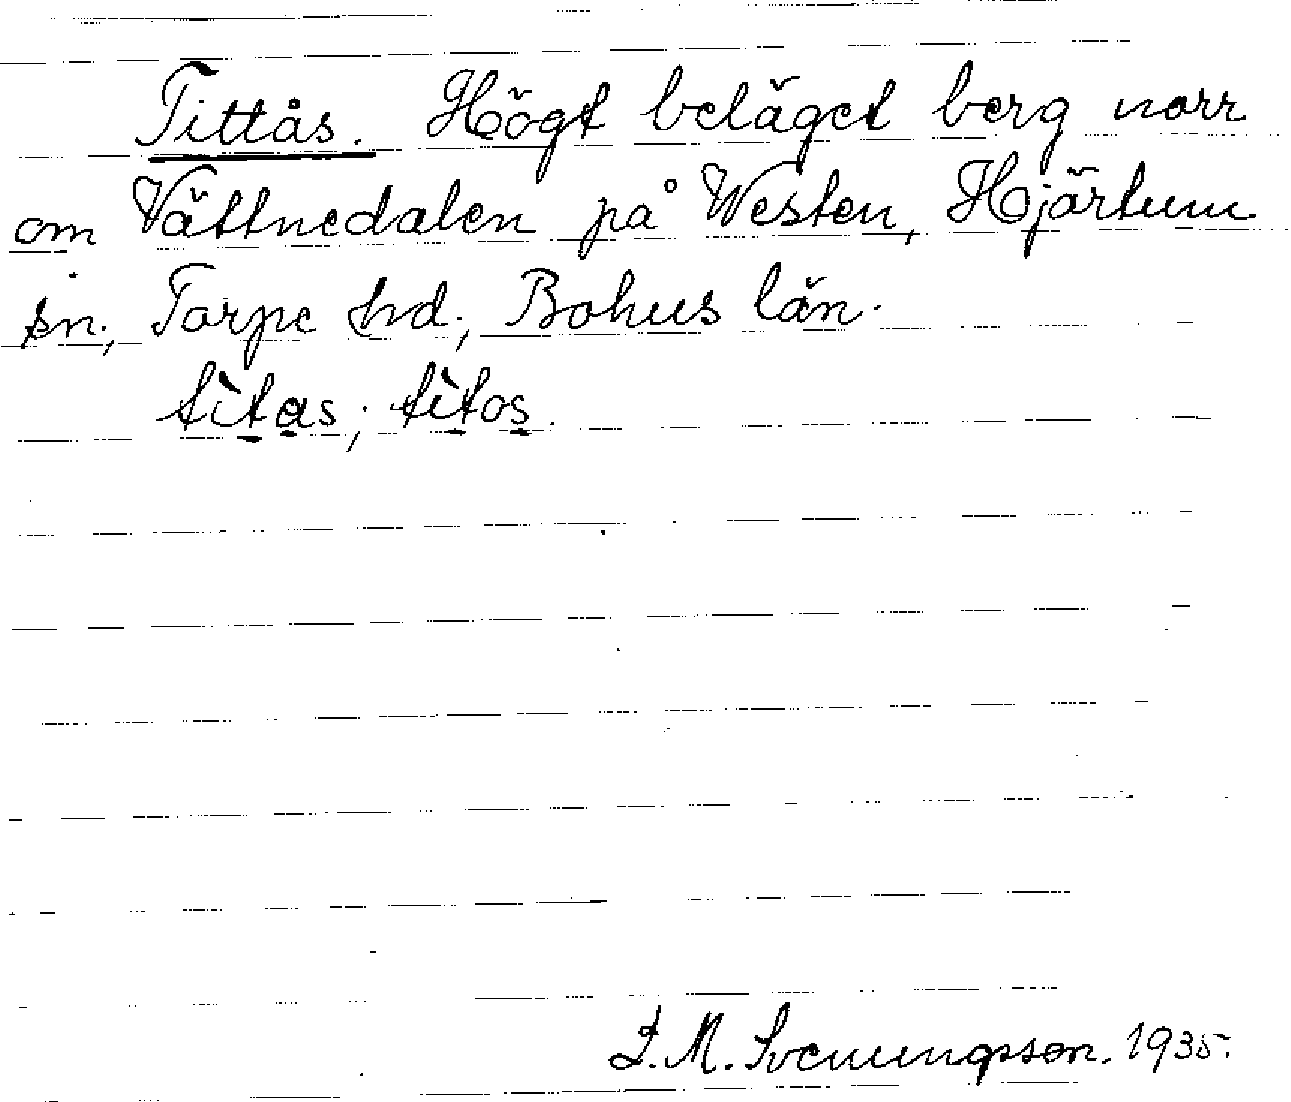 Tittås. Högt beläget berg norr
om Vättnedalen på Westen, Hjärtum
sn., Torpe hd., Bohus län.
tìtas; tìtos.
J. M. Svenungsson. 1935.